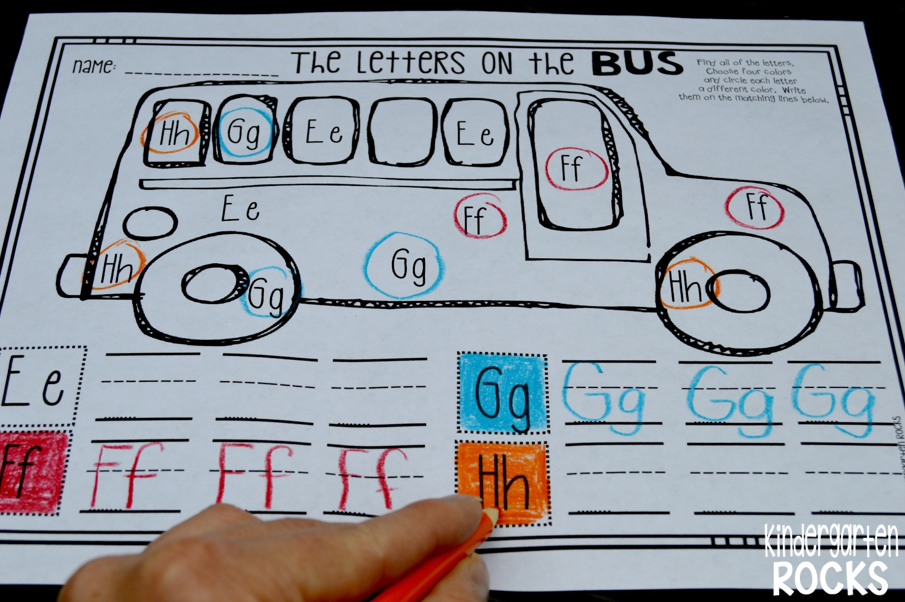 NAME: THE LETTERS ON THE BUS
Find all of the letters.
Choose four colors
and circle each letter
a different color. Write
them on the matching lines below.
Hh Gg Ee Ee
Ff
Ee Ff Ff
Hh Gg Gg Hh
Ee Gg Gg Gg Gg
Ff Ff Ff Ff Hh
ROCKS
kindergarten
ROCKS